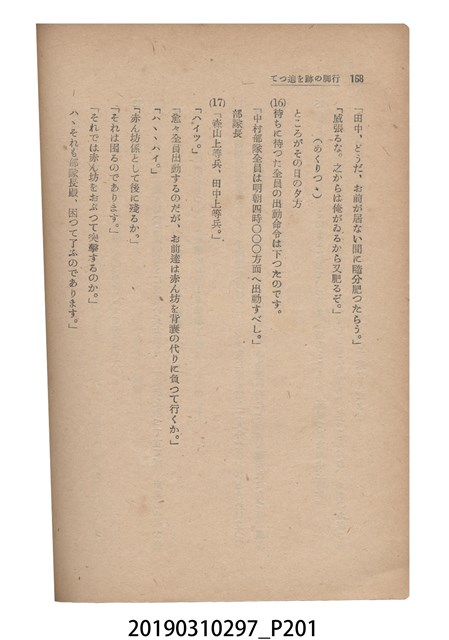 168 行脚の跡を追つて
「田中、どうだ、お前が居ない間に随分肥つたらう。」
「威張るな。之からは俺がゐるから又肥るぞ。」
(めくりつゝ)
ところがその日の夕方
(16)
待ちに待つた全員の出動命令は下つたのです。
「中村部隊全員は明朝四時〇〇〇方面へ出動すべし。」
部隊長
(17)
「森山上等兵、田中上等兵。」
「ヘイツ。」
「愈々全員出動するのだが、お前達は赤ん坊を背嚢の代りに負つて行くか。」
「ハ、ヽハイ。」
「赤ん坊係として後に残るか。」
「それは困るのであります。」
「それでは赤ん坊をおぶつて突撃するのか。」
ハヽそれも部隊長殿、困つて了ふのであります。」
20190310297_P201